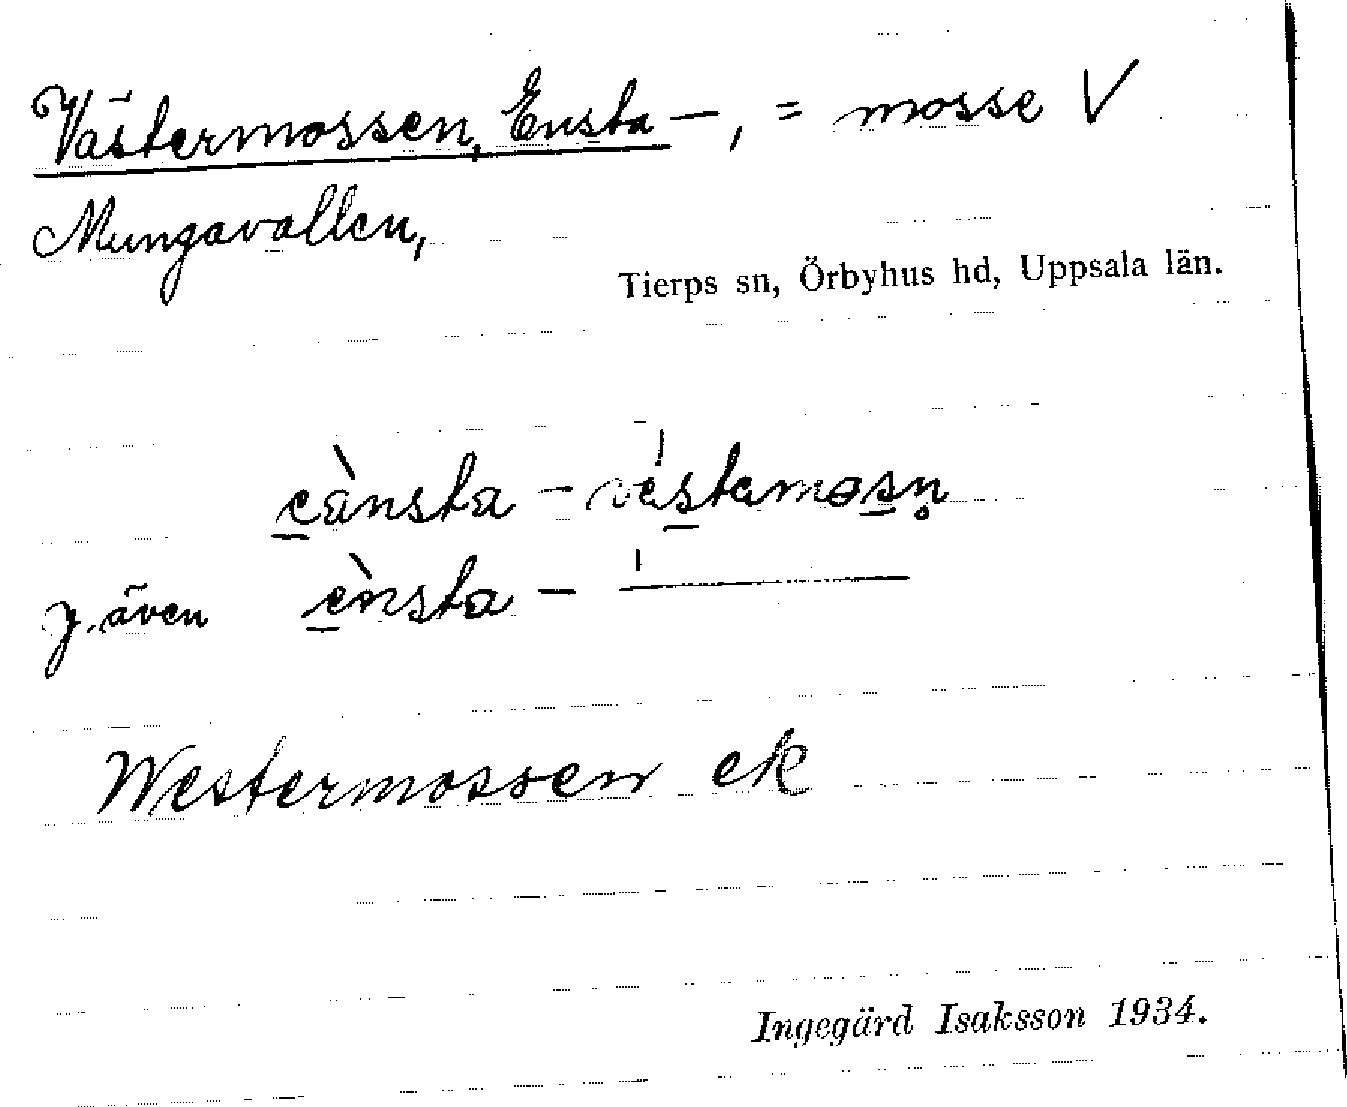 Västermossen, Ensta –, = mosse V
Mungavallen,
Tierps sn, Örbyhus hd, Uppsala län.
eànsta – véstamosn̥
y. även ènsta –
Westermossen ek
Ingegärd Isaksson 1934.